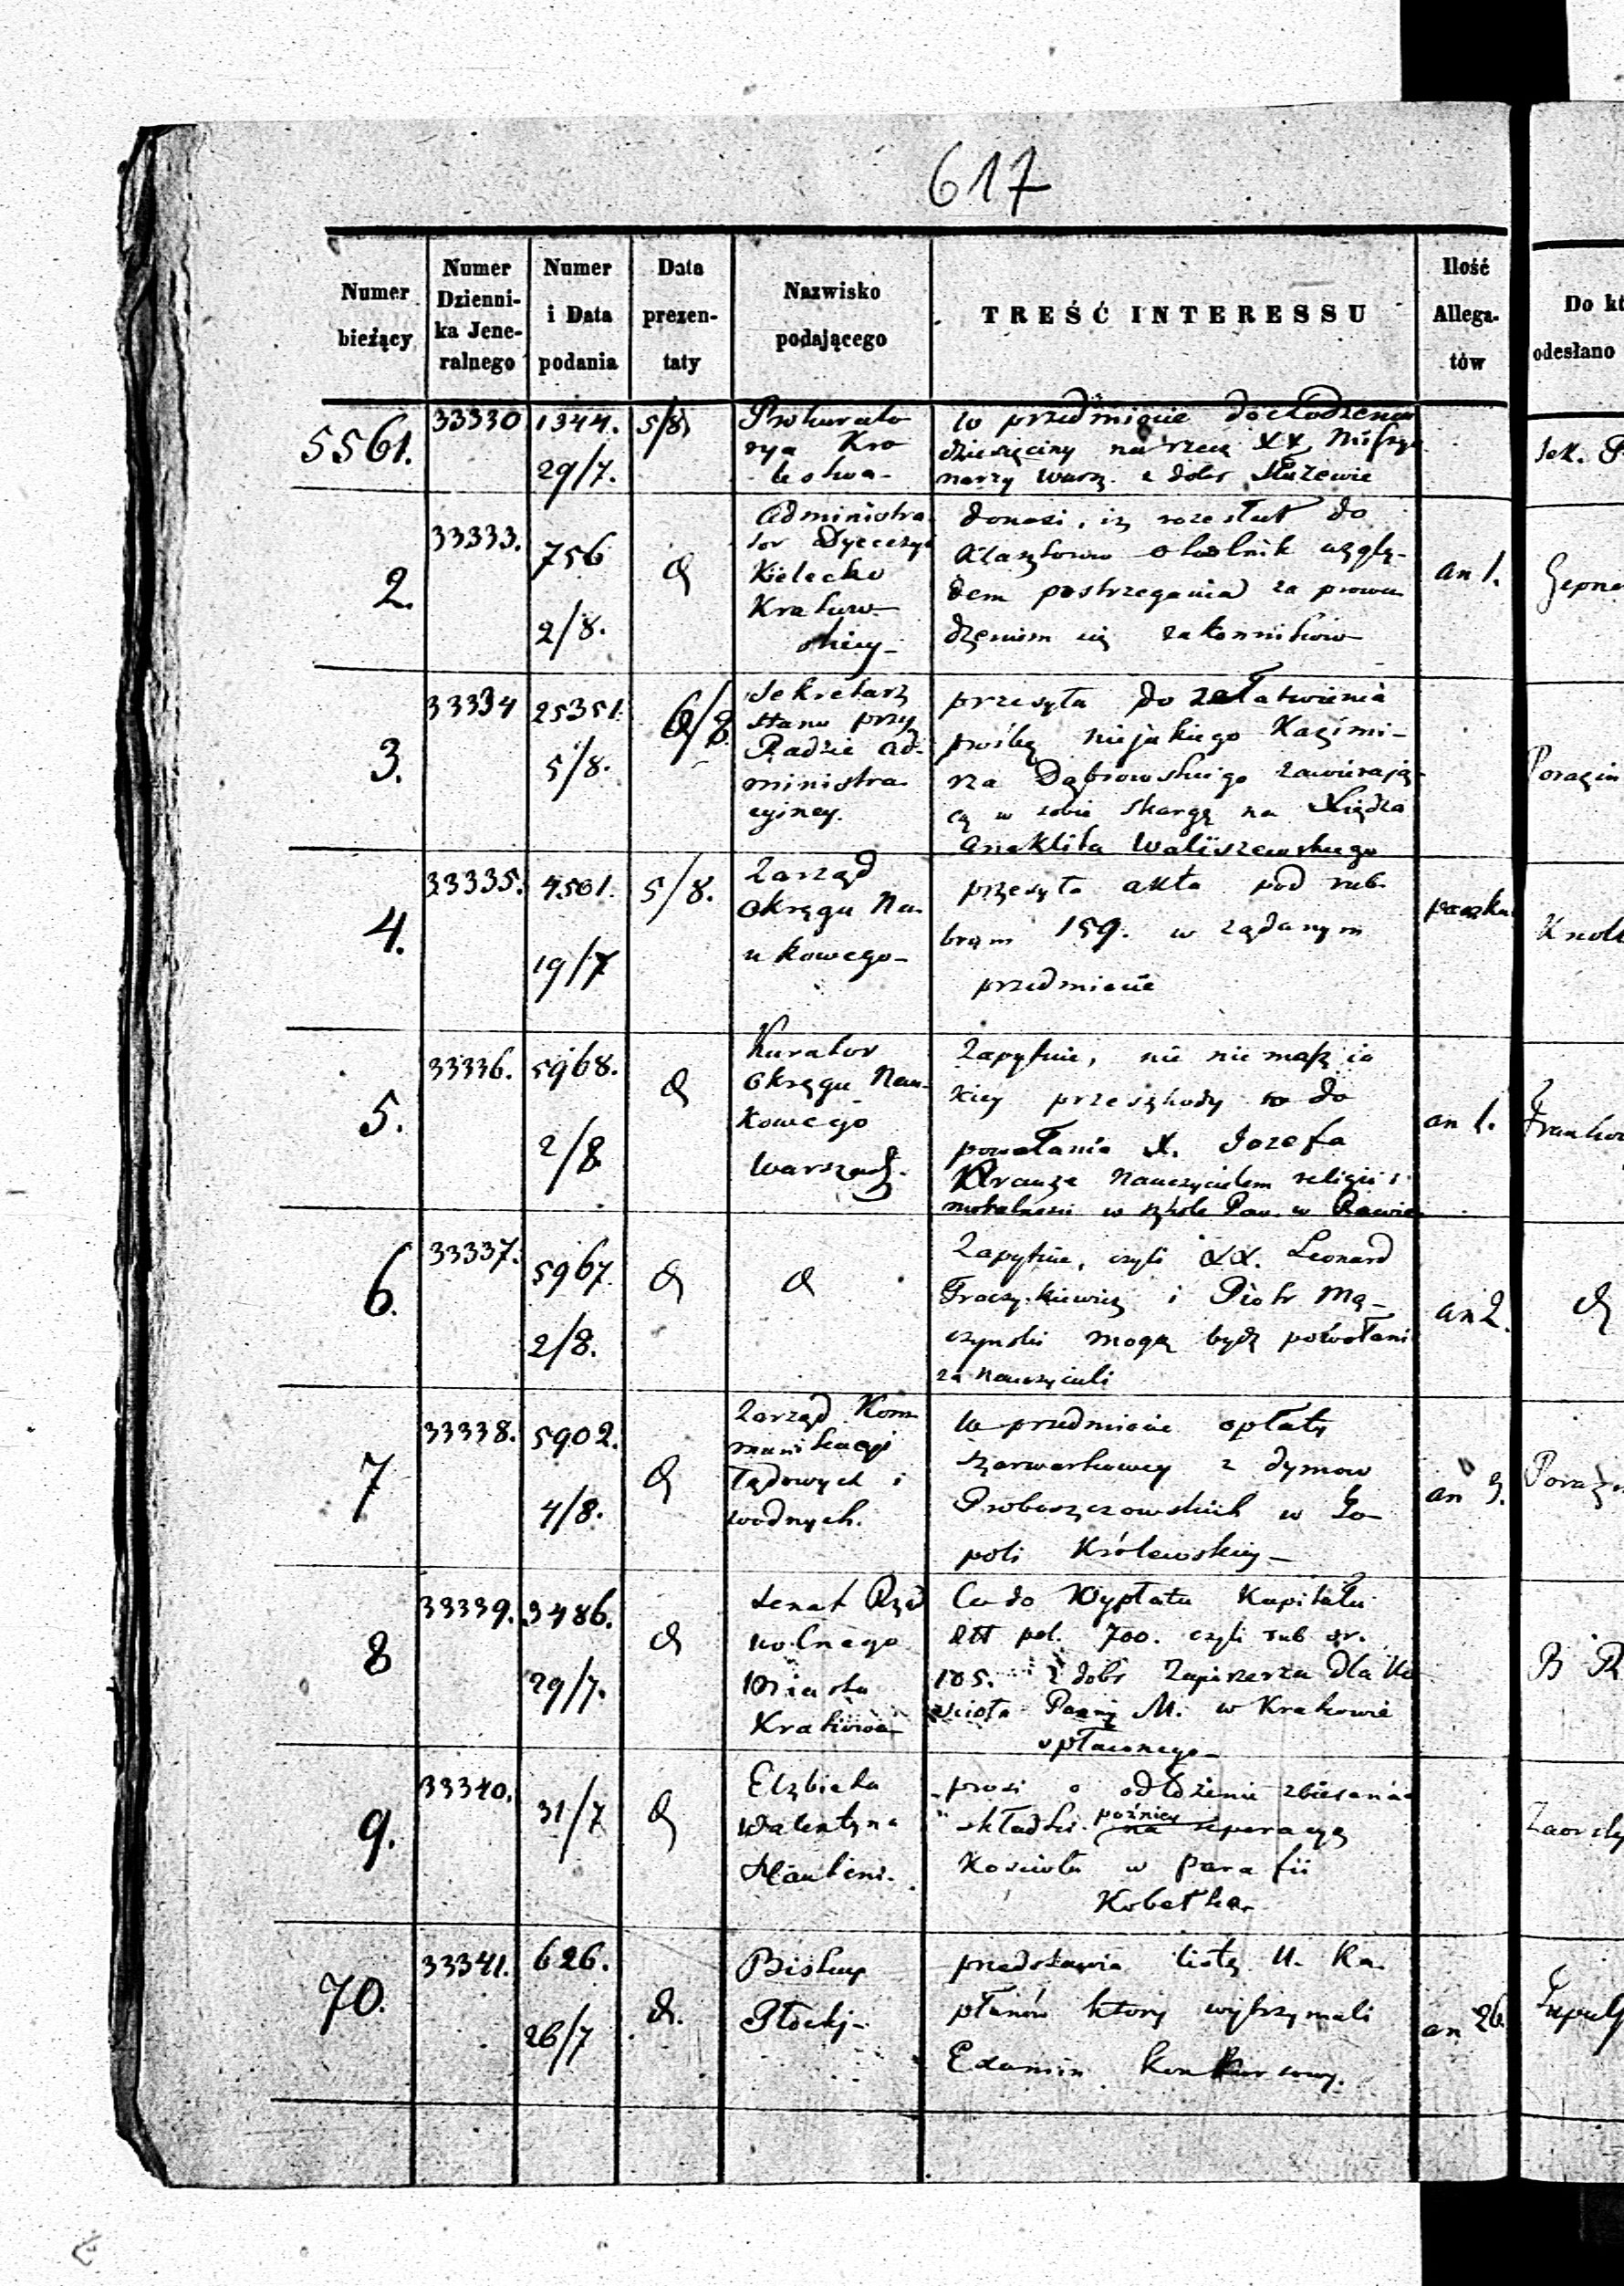 617
Numer bieżący
Numer Dzienni-ka Jene-ralnego
Numer i Data podania
Data prezen-taty
Nazwisko podającego
TREŚĆ INTERESSU
Ilość Allega-tów
Do kt
odesłano
5561. 33330 1344. 29/7. 5/8
Prokurato
rya Kro
lestwa
w przedmiocie dochodzenia
dziesięciny na rzecz XX
narzy Warsz. z dobr Służewie
Sek. P
2. 33333. 756 2/8. d
Administra
tor Dyecezyi
Kielecko
Krakow
skiey
donosi, iż rozesłał do
klasztorow okolnik wzglę-
dem postrzegania za prowa
dzeniem się zakonnikow
an 1.
3. 33334 25351. 5/8. 6/8.
Sekretarz
Stanu przy
Radzie Ad-
ministra
cyjney.
przesyła do załatwienia
prośbę niejakiego Kazimi-
rza Dąbrowskiego zawierają
cą w sobie skargę na Xiędza
Anaklita Waliszewskiego
4. 33335. 4501. 19/7 5/8.
Zarząd
Okręgu Na
ukowego
przesyła akta pod rub
brąm 159. w żądanym
przedmiocie
paczka
5. 33336. 5968. 2/8 d
Kurator
Okręgu Nau
kowego
Warszaws.
Zapytuie, nie niemasz ia
kiey przeszkody do
powołania X. Jozefa
Krauze Nauczycielem religii i
moralnosci w szkole Pow. w Rawie
an 1.
6. 33337. 5967. 2/8. d d
Zapytuie, czyli XX. Leonard
i Piotr Mą-
czynski mogą bydź powołani
za Nauczycieli
an 2. d
7 33338. 5902. 4/8. d
Zarząd Kom
munikacyi
lądowych i
wodnych.
w przedmiocie opłaty
szarwarkowey z dymow
Proboszczowskich w Zo
poli Królewskiey
an 3.
8 33339. 3486. 29/7. d
Senat Rząd
wolnego
Miasta
Krakowa
Co do Wypłatu Kapitału
pol. 700. czyli rub sr.
105. z dobr dla Ko
scioła Panny M. w Krakowie
opłaconego
9. 33340. 31/7 d
Elzbieta
Walentyna
prosi o odłożenie zbierania
składki poźniey na reperacyą
Kościoła w parafii
Kobełka
70. 33341. 626. 26/7 d.
Biskup
Płocki
przedstawia listę U. Ka
płanów ktory wytrzymali
Examin konkursowy.
an 26.